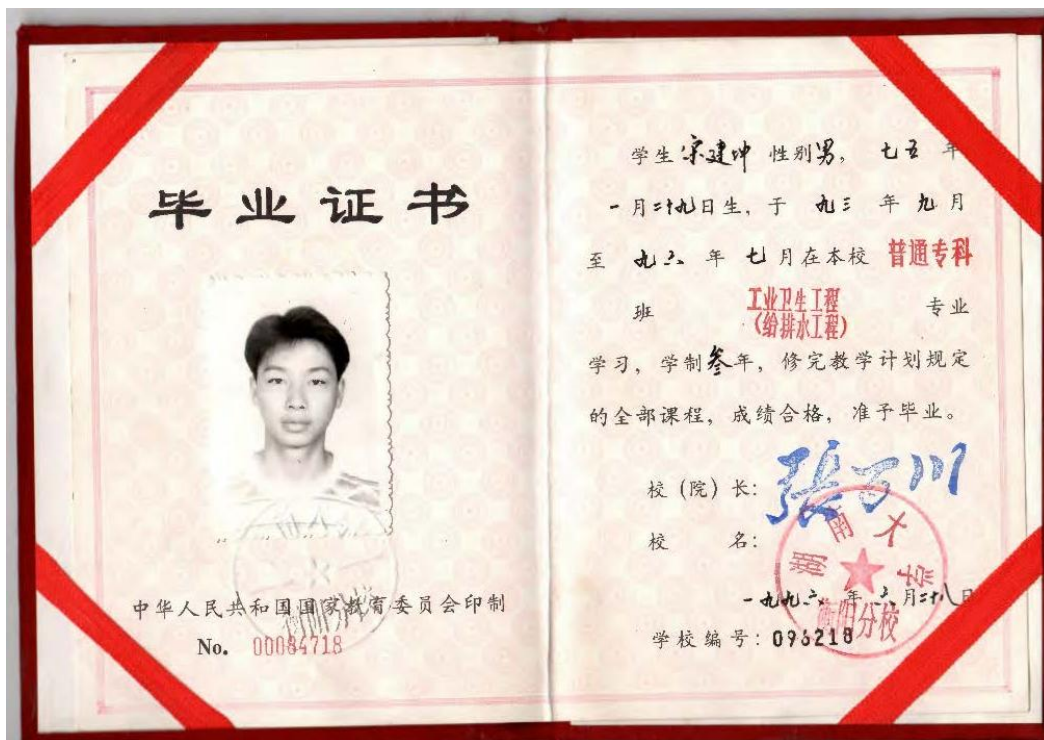 毕业证书
中华人民共和国国家教育委员会印制
No. 00084718
学生宋建坤 性别男, 七五 年
一月二十九日生, 于 九三 年 九月
至 九六 年 七月在本校 普通专科
班 工业卫生工程 专业
(给排水工程)
学习, 学制叁年, 修完教学计划规定
的全部课程, 成绩合格, 准予毕业。
校(院)长: 張万川
校 名: 湖南大学
衡阳分校
一九九六 年 六月二十八日
学校编号: 096218